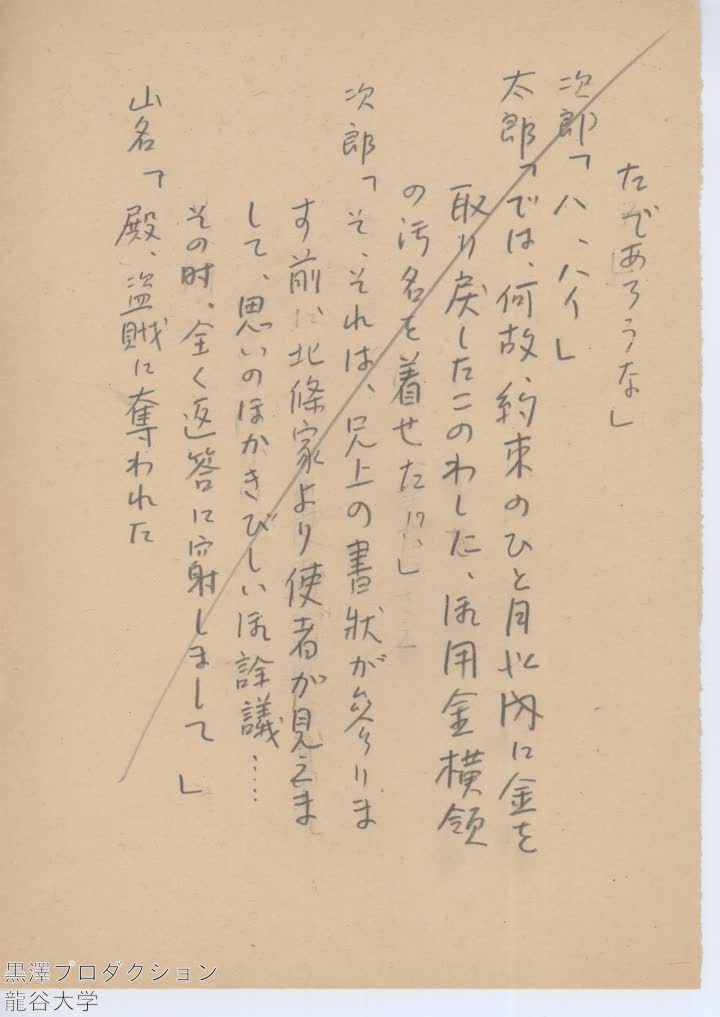 たであろうな」
次郎「ハ、ハイ」
太郎「では、何故、約束のひと月以内に金を
取り戻したこのわしに、御用金横領
の汚名を着せた!?」
次郎「そ、それは、兄上の書状が参りま
す前に、北條家より使者が見えま
して、思いのほかきびしい御詮議……
その時、全く返答に窮しまして」
山名「殿、盗賊に奪われた
黒澤プロダクション
龍谷大学